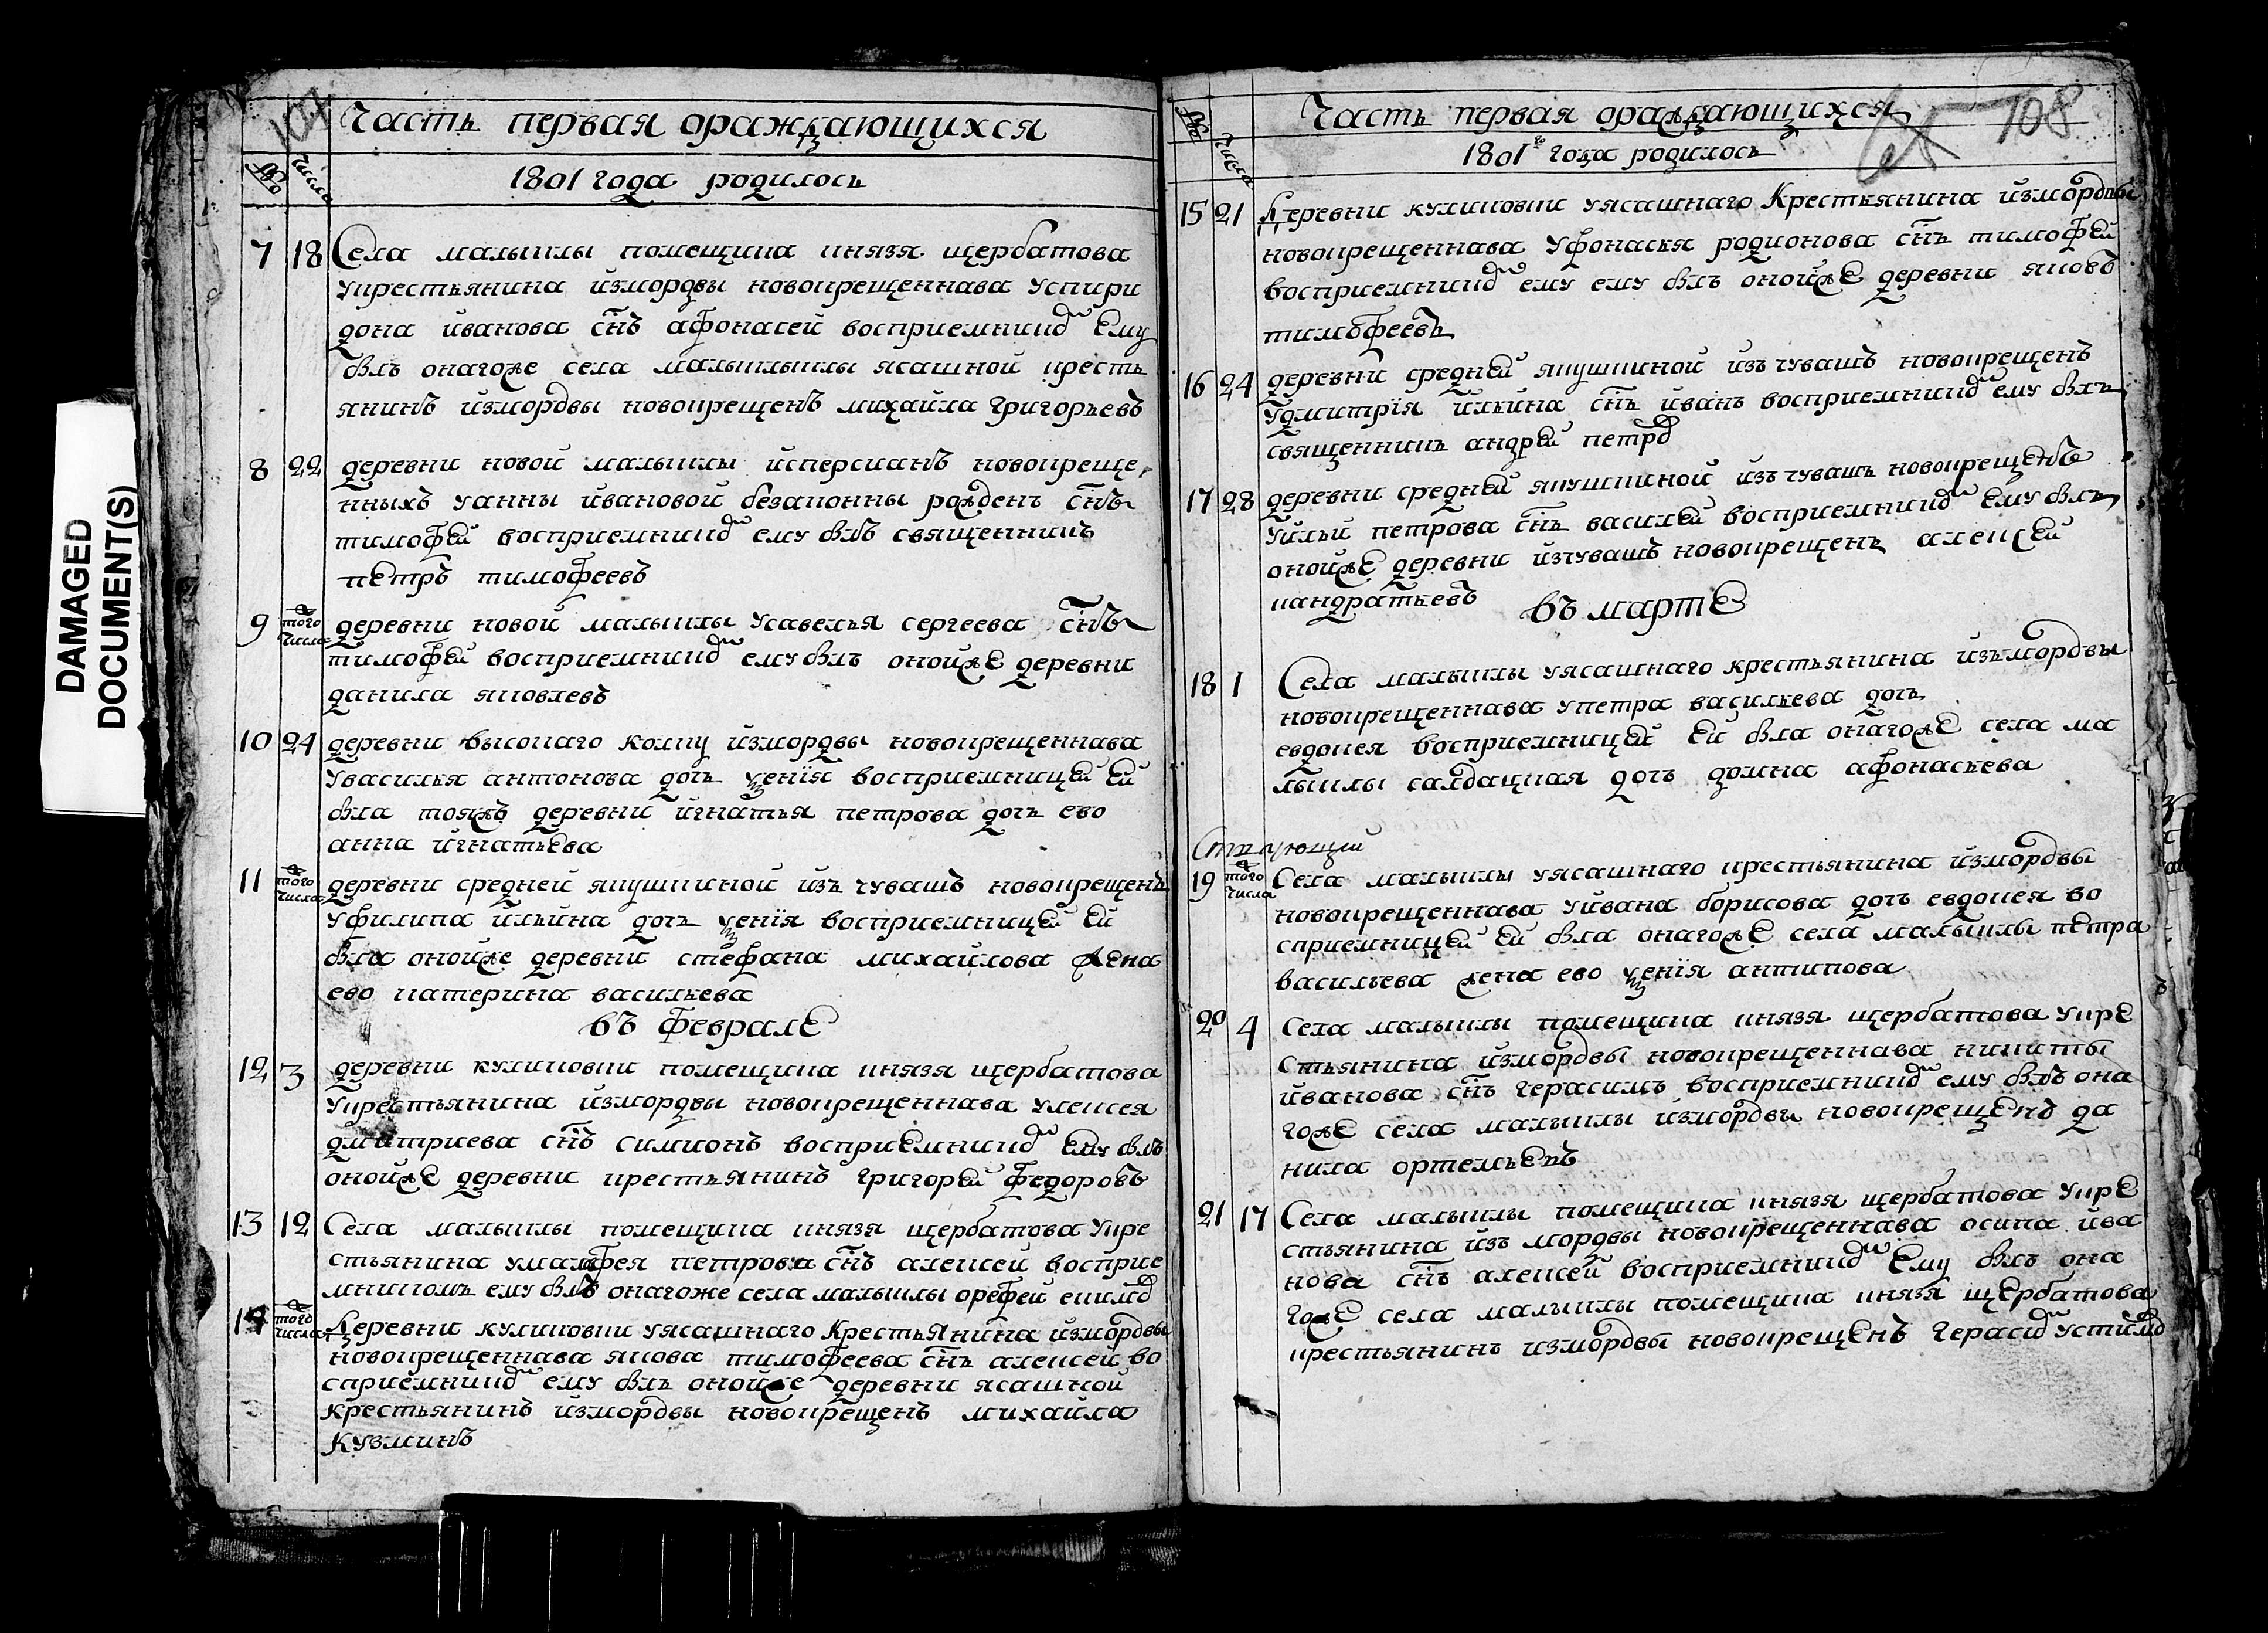 DAMAGED
DOCUMENT(S)
107
Часть первая ораждающихся
№ число
1801 года родилось
7 18 Села малыклы помещика князя щербатова
укрестьянина измордвы новокрещеннава успири
дона иванова снъ афонасей восприемникомъ ему
былъ онагоже села малыклы ясашной кресть
янинъ измордвы новокрещенъ михаила григорьевъ
8 22 деревни новой малыклы исперсианъ новокреще
нныхъ уанны ивановой безаконны рожденъ снъ
тимофей восприемникомъ ему былъ священникъ
петръ тимофеевъ
9 того числа деревни новой малыклы усавелья сергеева снъ
тимофей восприемникомъ ему былъ онойже деревни
данила яковлевъ
10 24 деревни высокаго колку измордвы новокрещеннава
увасилья антонова дочь ксенїя восприемницей ей
была тояжъ деревни игнатья петрова дочь ево
анна игнатьева
11 того числа деревни средней якушкиной изъ чувашъ новокрещенъ
уфилипа ильина дочь ксенїя восприемницей ей
была онойже деревни стефана михайлова жена
ево катерина васильева
въ феврале
12 3 деревни куликовки помещика князя щербатова
укрестьянина измордвы новокрещеннава улексея
дмитриева снъ симионъ восприемникомъ ему былъ
онойже деревни крестьянинъ григорей федоровъ
13 12 Села малыклы помещика князя щербатова укре
стьянина умалафея петрова снъ алексей восприе
мникомъ ему былъ онагоже села малыклы орефей
14 того числа Деревни куликовки уясашнаго крестьянина измордвы
новокрещеннава якова тимофеева снъ алексей во
сприемникомъ ему былъ онойже деревни ясашной
крестьянинъ измордвы новокрещенъ михаила
кузминъ
108
№ числа
Часть первая ораждающихся
1801го года родилось
15 21 Деревни куликовки уясашнаго Крестьянина измордвы
новокрещеннава уфонасья родионова снъ тимофей
восприемникомъ ему ему былъ онойже деревни яковъ
тимофеевъ
16 24 деревни средней якушкиной изъ чувашъ новокрещенъ
удмитрїя ильина снъ иванъ восприемникомъ ему былъ
священникъ андрей петровъ
17 28 деревни средней якушкиной изъ чувашъ новокрещенъ
уильи петрова снъ василей восприемникомъ ему былъ
онойже деревни изчувашъ новокрещенъ алексей
кандратьевъ
въ марте
18 1 Села малыклы уясашнаго крестьянина изъмордвы
новокрещеннава упетра васильева дочь
евдокея восприемницей ей была онагоже села ма
лыклы салдацкая дочь домна афонасьева
19 того числа Села малыклы уясашнаго крестьянина измордвы
новокрещеннава уивана борисова дочь евдокея во
сприемницей ей была онагоже села малыклы петра
васильева жена ево ксенїя антипова
20 4 Села малыклы помещика князя щербатова укре
стьянина измордвы новокрещеннава никиты
иванова снъ герасимъ восприемникомъ ему былъ она
гоже села малыклы измордвы новокрещенъ да
нила ортемьевъ
21 17 Села малыклы помещика князя щербатова укре
стьянина изъ мордвы новокрещеннава осипа ива
нова снъ алексей восприемникомъ ему былъ она
гоже села малыклы помещика князя щербатова
крестьянинъ измордвы новокрещенъ герасимъ